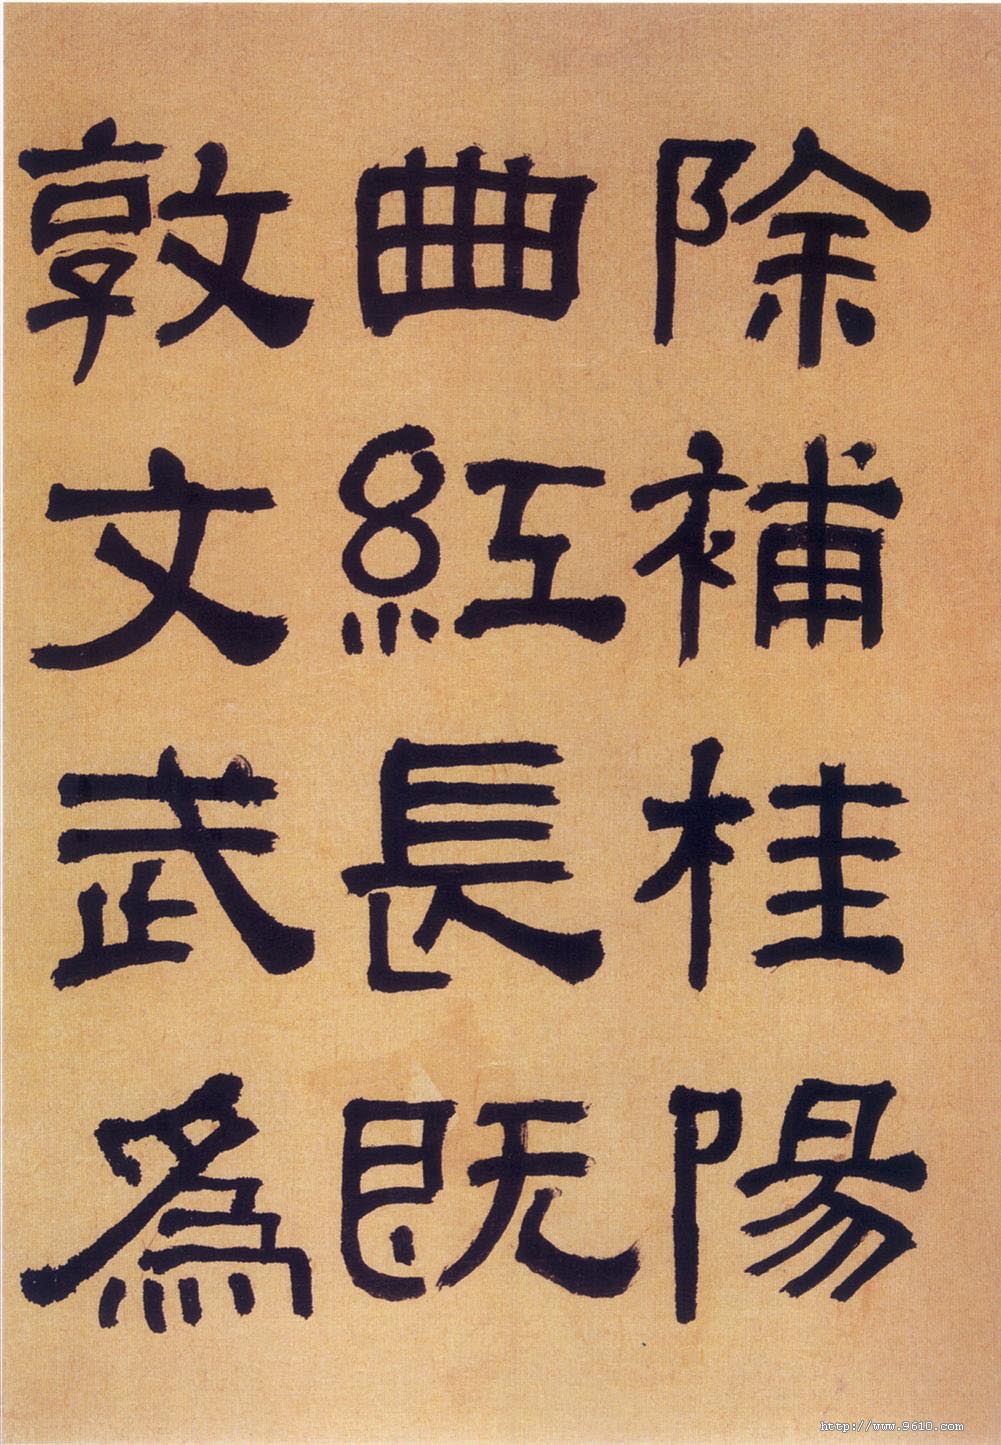 除補桂陽
曲紅長既
敦文武爲
http://www.9610.com